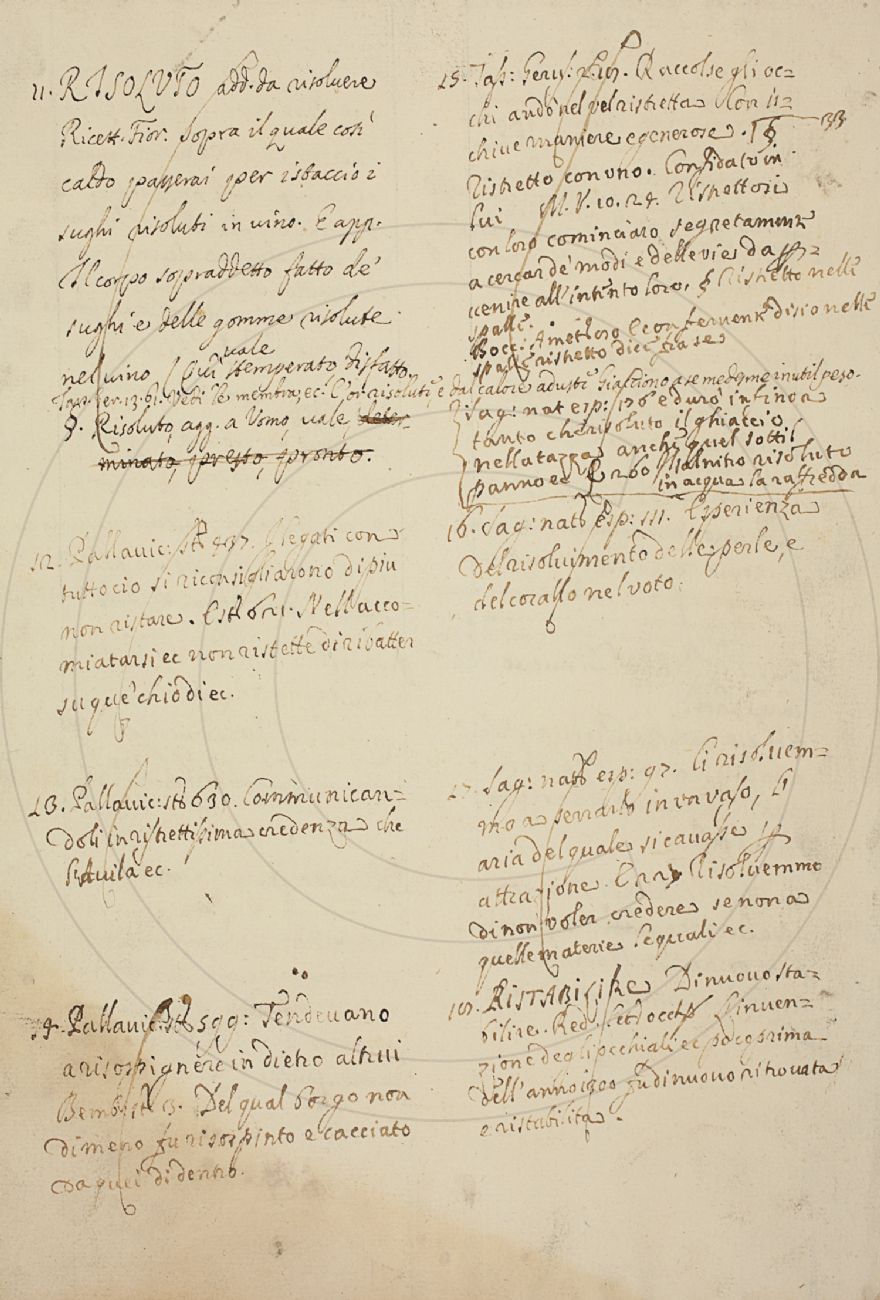 11. RISOLUTO add. da risolvere
Ricett. Fior. sopra il quale così
caldo passerai per istaccio i
sughi risoluti in vino. E app.
Il corpo sopraddetto fatto de'
sughi e delle gomme risolute
nel vino (Qui vale stemperato, disfatto
Tass. Ger. 13. 61. Vedi le membra, ec. risoluti, e dal calore adusti Giacciono a se medesme inutil peso.
§. Risoluto, agg. a Uomo, vale, deter-
minato, presto, pronto.
12. Pallavic: St. 497. I legati con
tuttociò si riconsigliarono di più
non ristare. E St. 621. Nell'acco-
miatarsi ec non ristette di ribatter
su que' chiodi ec.
13. Pallavic: St. 630. Communican-
doli in ristrettissima credenza che
l'Avila ec.
14. Pallavic: St. 599: Tendevano
a risospignere in dietro altrui
Bemb. St. 3. Del qual borgo non
dimeno fu risospinto e cacciato
da quei di dentro.
15. Tass: Ger. Raccolse gli oc-
chi andò nel vel ristretta Con is-
chive maniere e generose. §
Ristretto con uno. Confidato in
lui M. V. 10. 24. Ristrettosi
con loro cominciaro segretamente
a cercar de' modi e delle vie da per-
venire all'intento loro. § Ristretto nelle
spalle.
Bocc: Amet. loro e con fervente disio nelle
spalle ristretto dice fra se
Sag: nat esp: 176 e durò infino a
tanto che risoluto il ghiaccio
nella tazza anche quel sottil
panno ec E 260 Salnitro risoluto
in acqua la raffredda
16. Sag: nat. esp: 111. Esperienza
del risolvimento delle perle, e
del corallo nel voto.
17. Sag: nat. esp: 97. Ci risolvem-
mo a serrarlo in un vaso, l'
aria del quale si cavasse per
attrazione. E Risolvemmo
di non voler credere se non a
quelle materie le quali ec.
18. RISTABILIRE Di nuovo sta-
bilire. Red. Lett. occh. L'inven-
zione degli occhiali ec poco prima
dell'anno 1300 fu di nuovo ritrovata
e ristabilita.